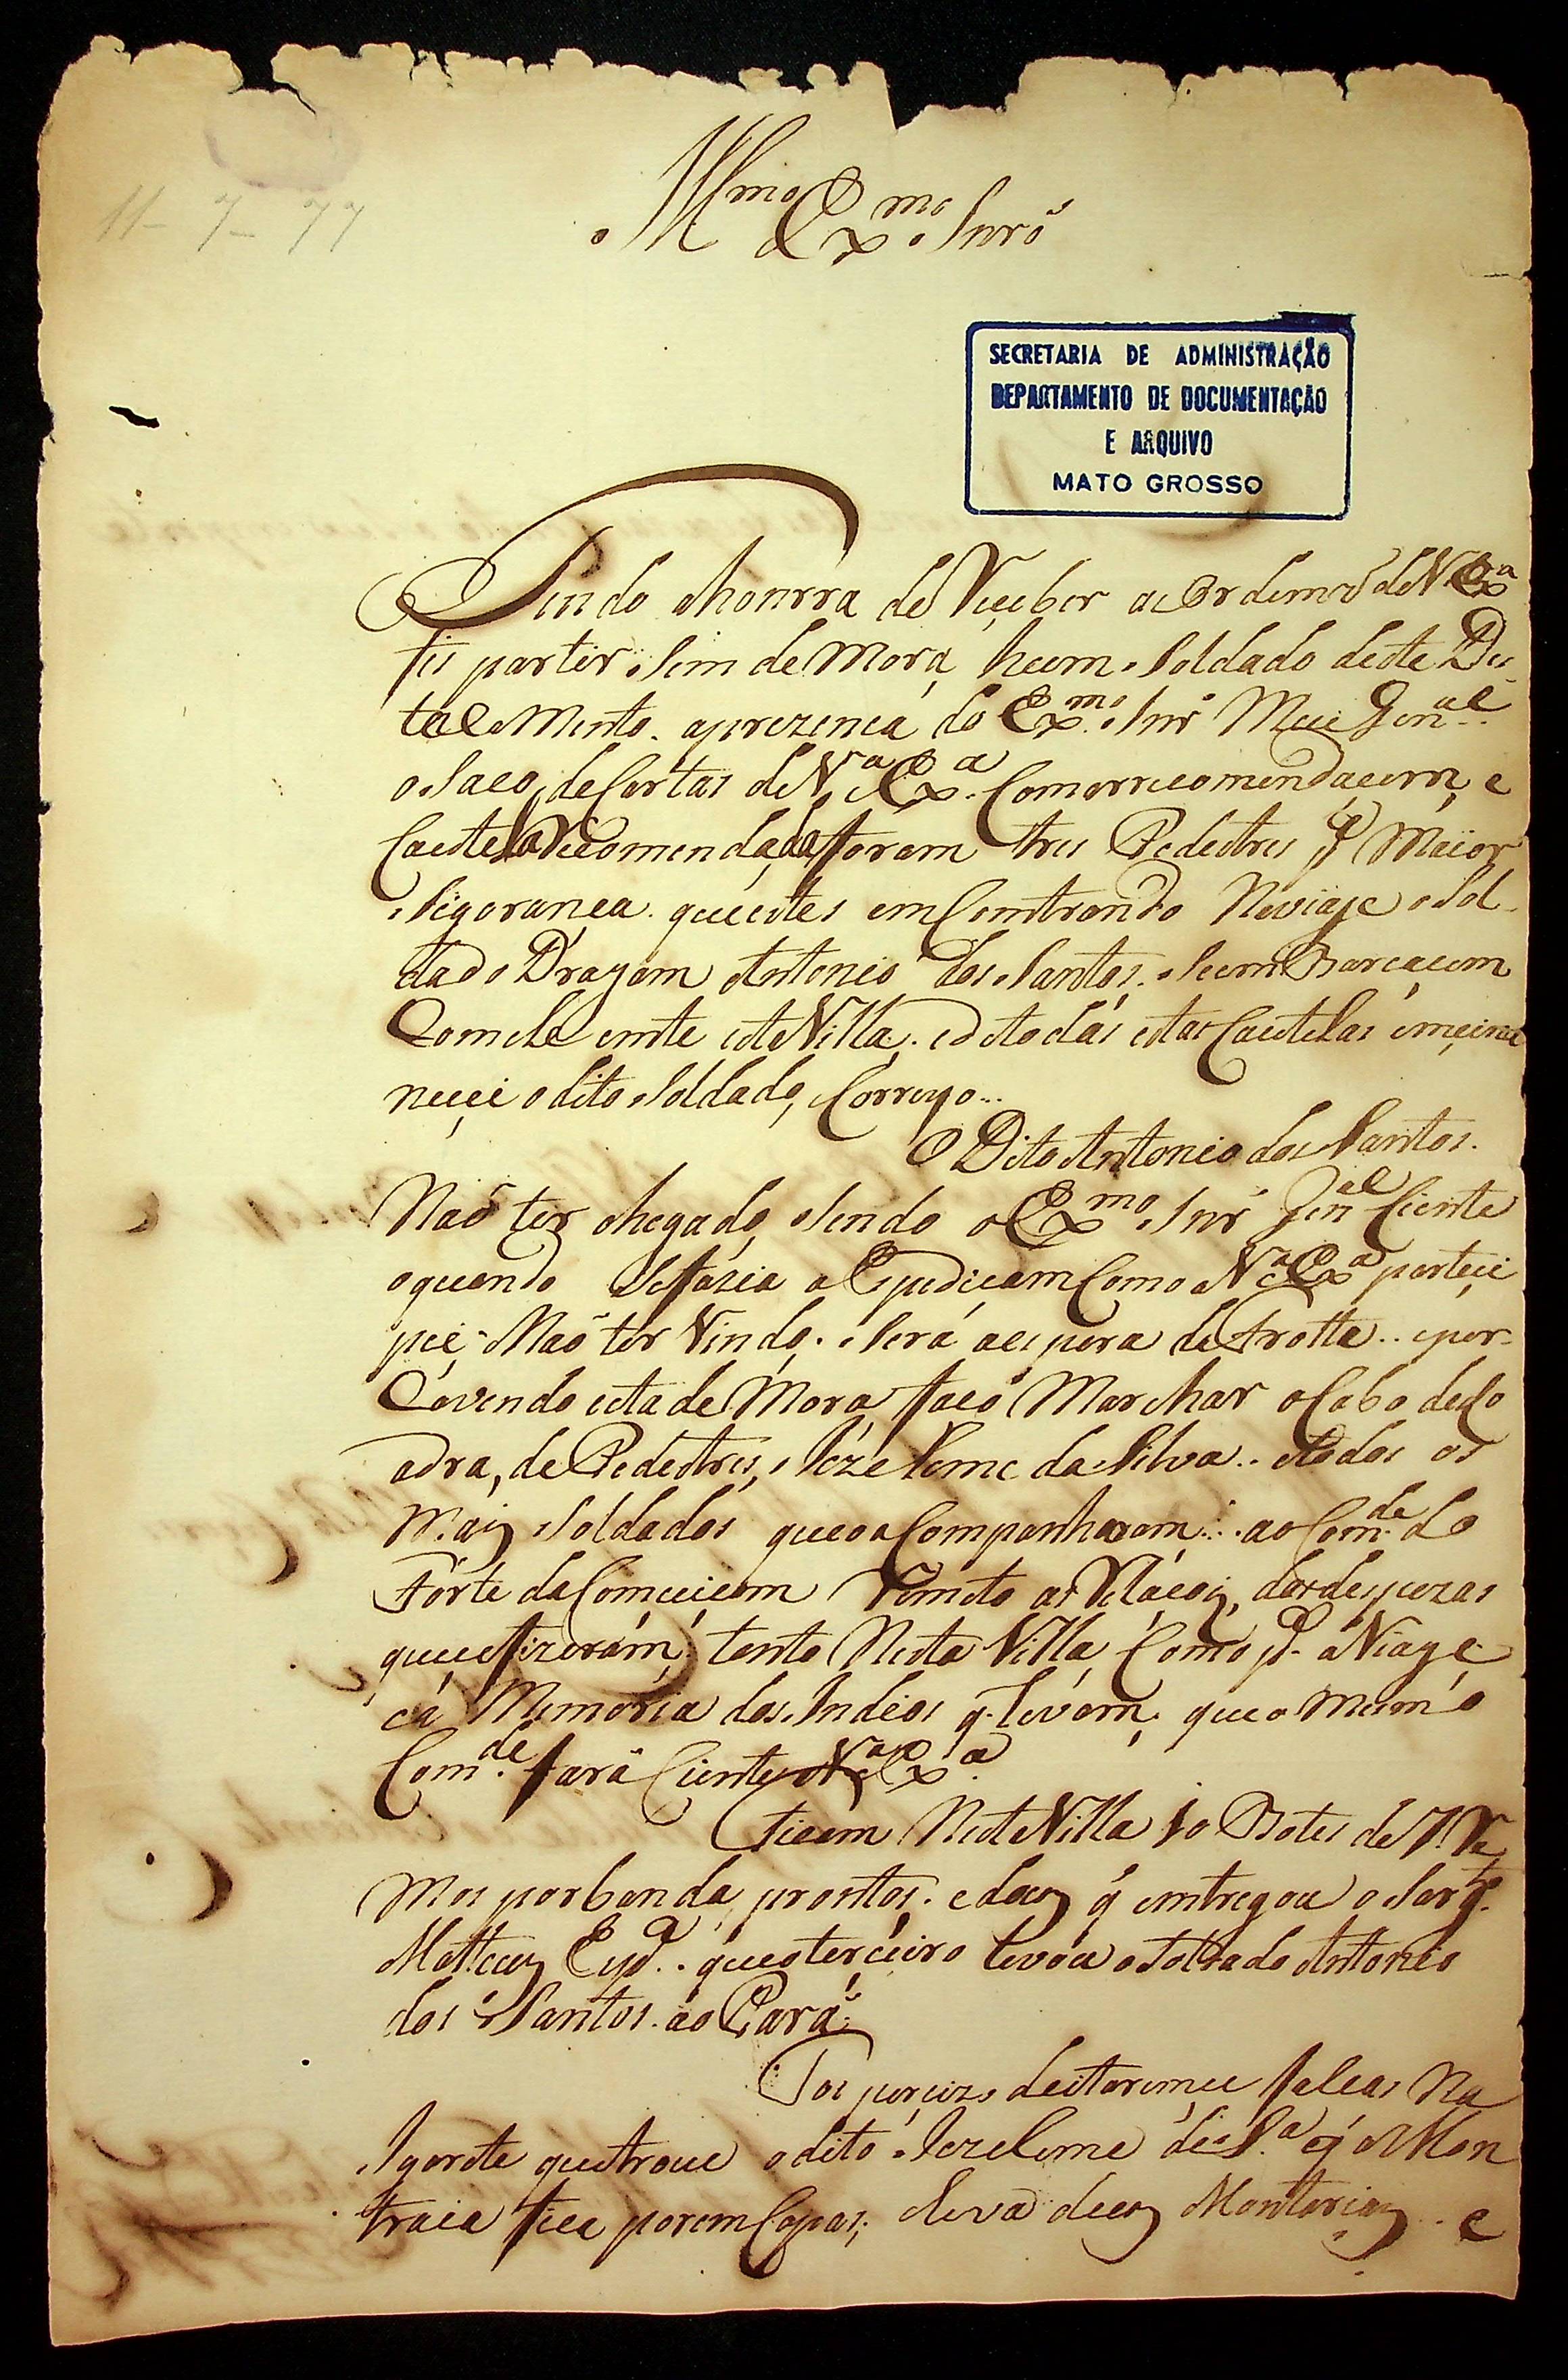 11 - 7 - 77
Illmo Exmo Snrõ
SECRETARIA DE ADMINISTRAÇÃO
DEPARTAMENTO DE DOCUMENTAÇÃO
E ARQUIVO
MATO GROSSO
Tendo ahonrra de Reçeber as Ordenz de V Exa
fis partir Sem de Mora hum Soldado deste Des
tacamento. aprezença do Exmo Snr Meu Genal
o Saco de Cartas de Va Exa. Comarrecomendaçam e
Cautella Recomendada foram tres Pedestres p Maior
Sigorança. que estes emContrando Naviaje o Sol
dado Dragam Antonio dos Santos. Seem Barcaçem
Comele emte esta Villa. e de todas estas Cautelas
o dito Soldado, Correyo...
O Dito Antonio dos Santos.
Naõ ter chegado, Sendo o Exmo Snr Genal Ciente
oquando Sefazia a Espediçam Como Va Exa parteçi
pei Naõ ter Vindo. Sera aespera da Frotta.. epor
Covendo esta de Mora faço Marchar o Cabo desco
adra, de Pedestres, Joze Leme da Silva.. etodos os
Mais Soldados queoaCompanharam... ao Comde do
Forte da Comceicam Remeto as Relaçois, dasdespezas
que efizeram, tanto Nesta Villa Como pa aViage
ea Memoria dos Indios q. levam, queo mesmo
Comde fara Ciente a Va Exa
Ficam Nesta Villa 10 Botes de 7 Re
Mos por banda, prontos. e dous q entregou o Sargto
Matteus queoterceiro levou o Soldado Antonio
dos Santos ao Pará.
Foi percizo deitaremçe falcas Na
Igarite quetrouce o dito Joze Leme da Sa q a Mon
traia fica porem Capas. eleva duas Montarias e